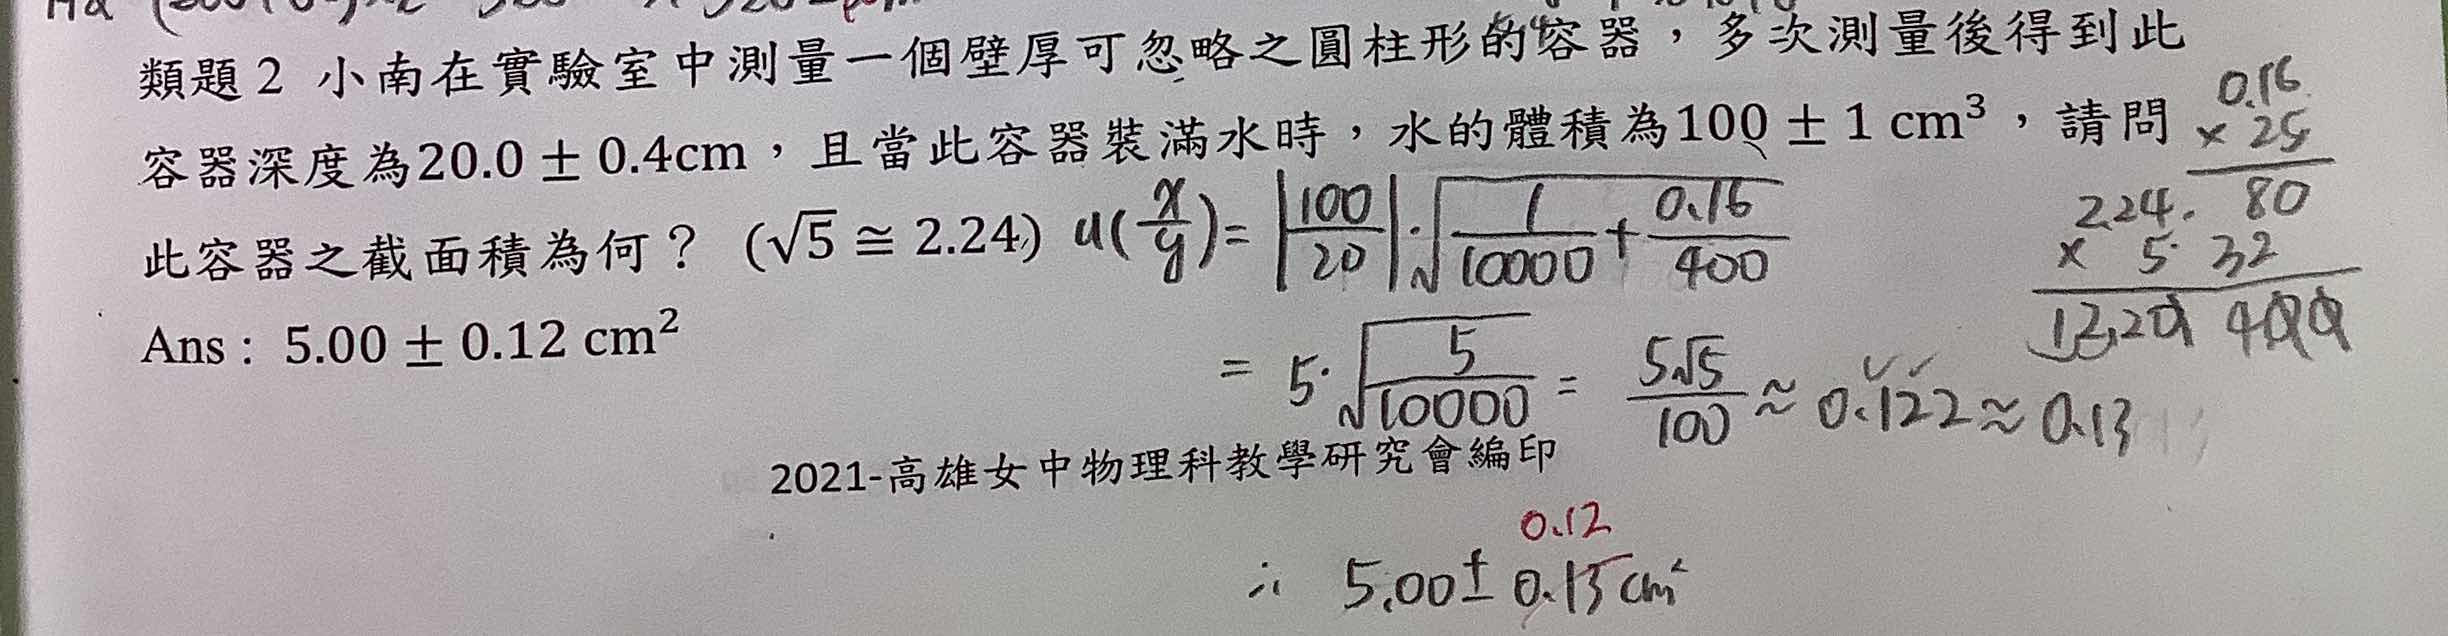 類題2 小南在實驗室中測量一個壁厚可忽略之圓柱形的容器，多次測量後得到此
容器深度為20.0 ± 0.4cm，且當此容器裝滿水時，水的體積為100 ± 1 cm³，請問
此容器之截面積為何？ (√5 ≅ 2.24) u(x/y) = |100/20|·√(1/10000 + 0.16/400)
Ans： 5.00 ± 0.12 cm²
= 5·√(5/10000) = 5√5/100 ≈ 0.122 ≈ 0.13
0.16
× 25
80
32
400
2.24
× 5
2021-高雄女中物理科教學研究會編印
0.12
∴ 5.00 ± 0.13 cm²